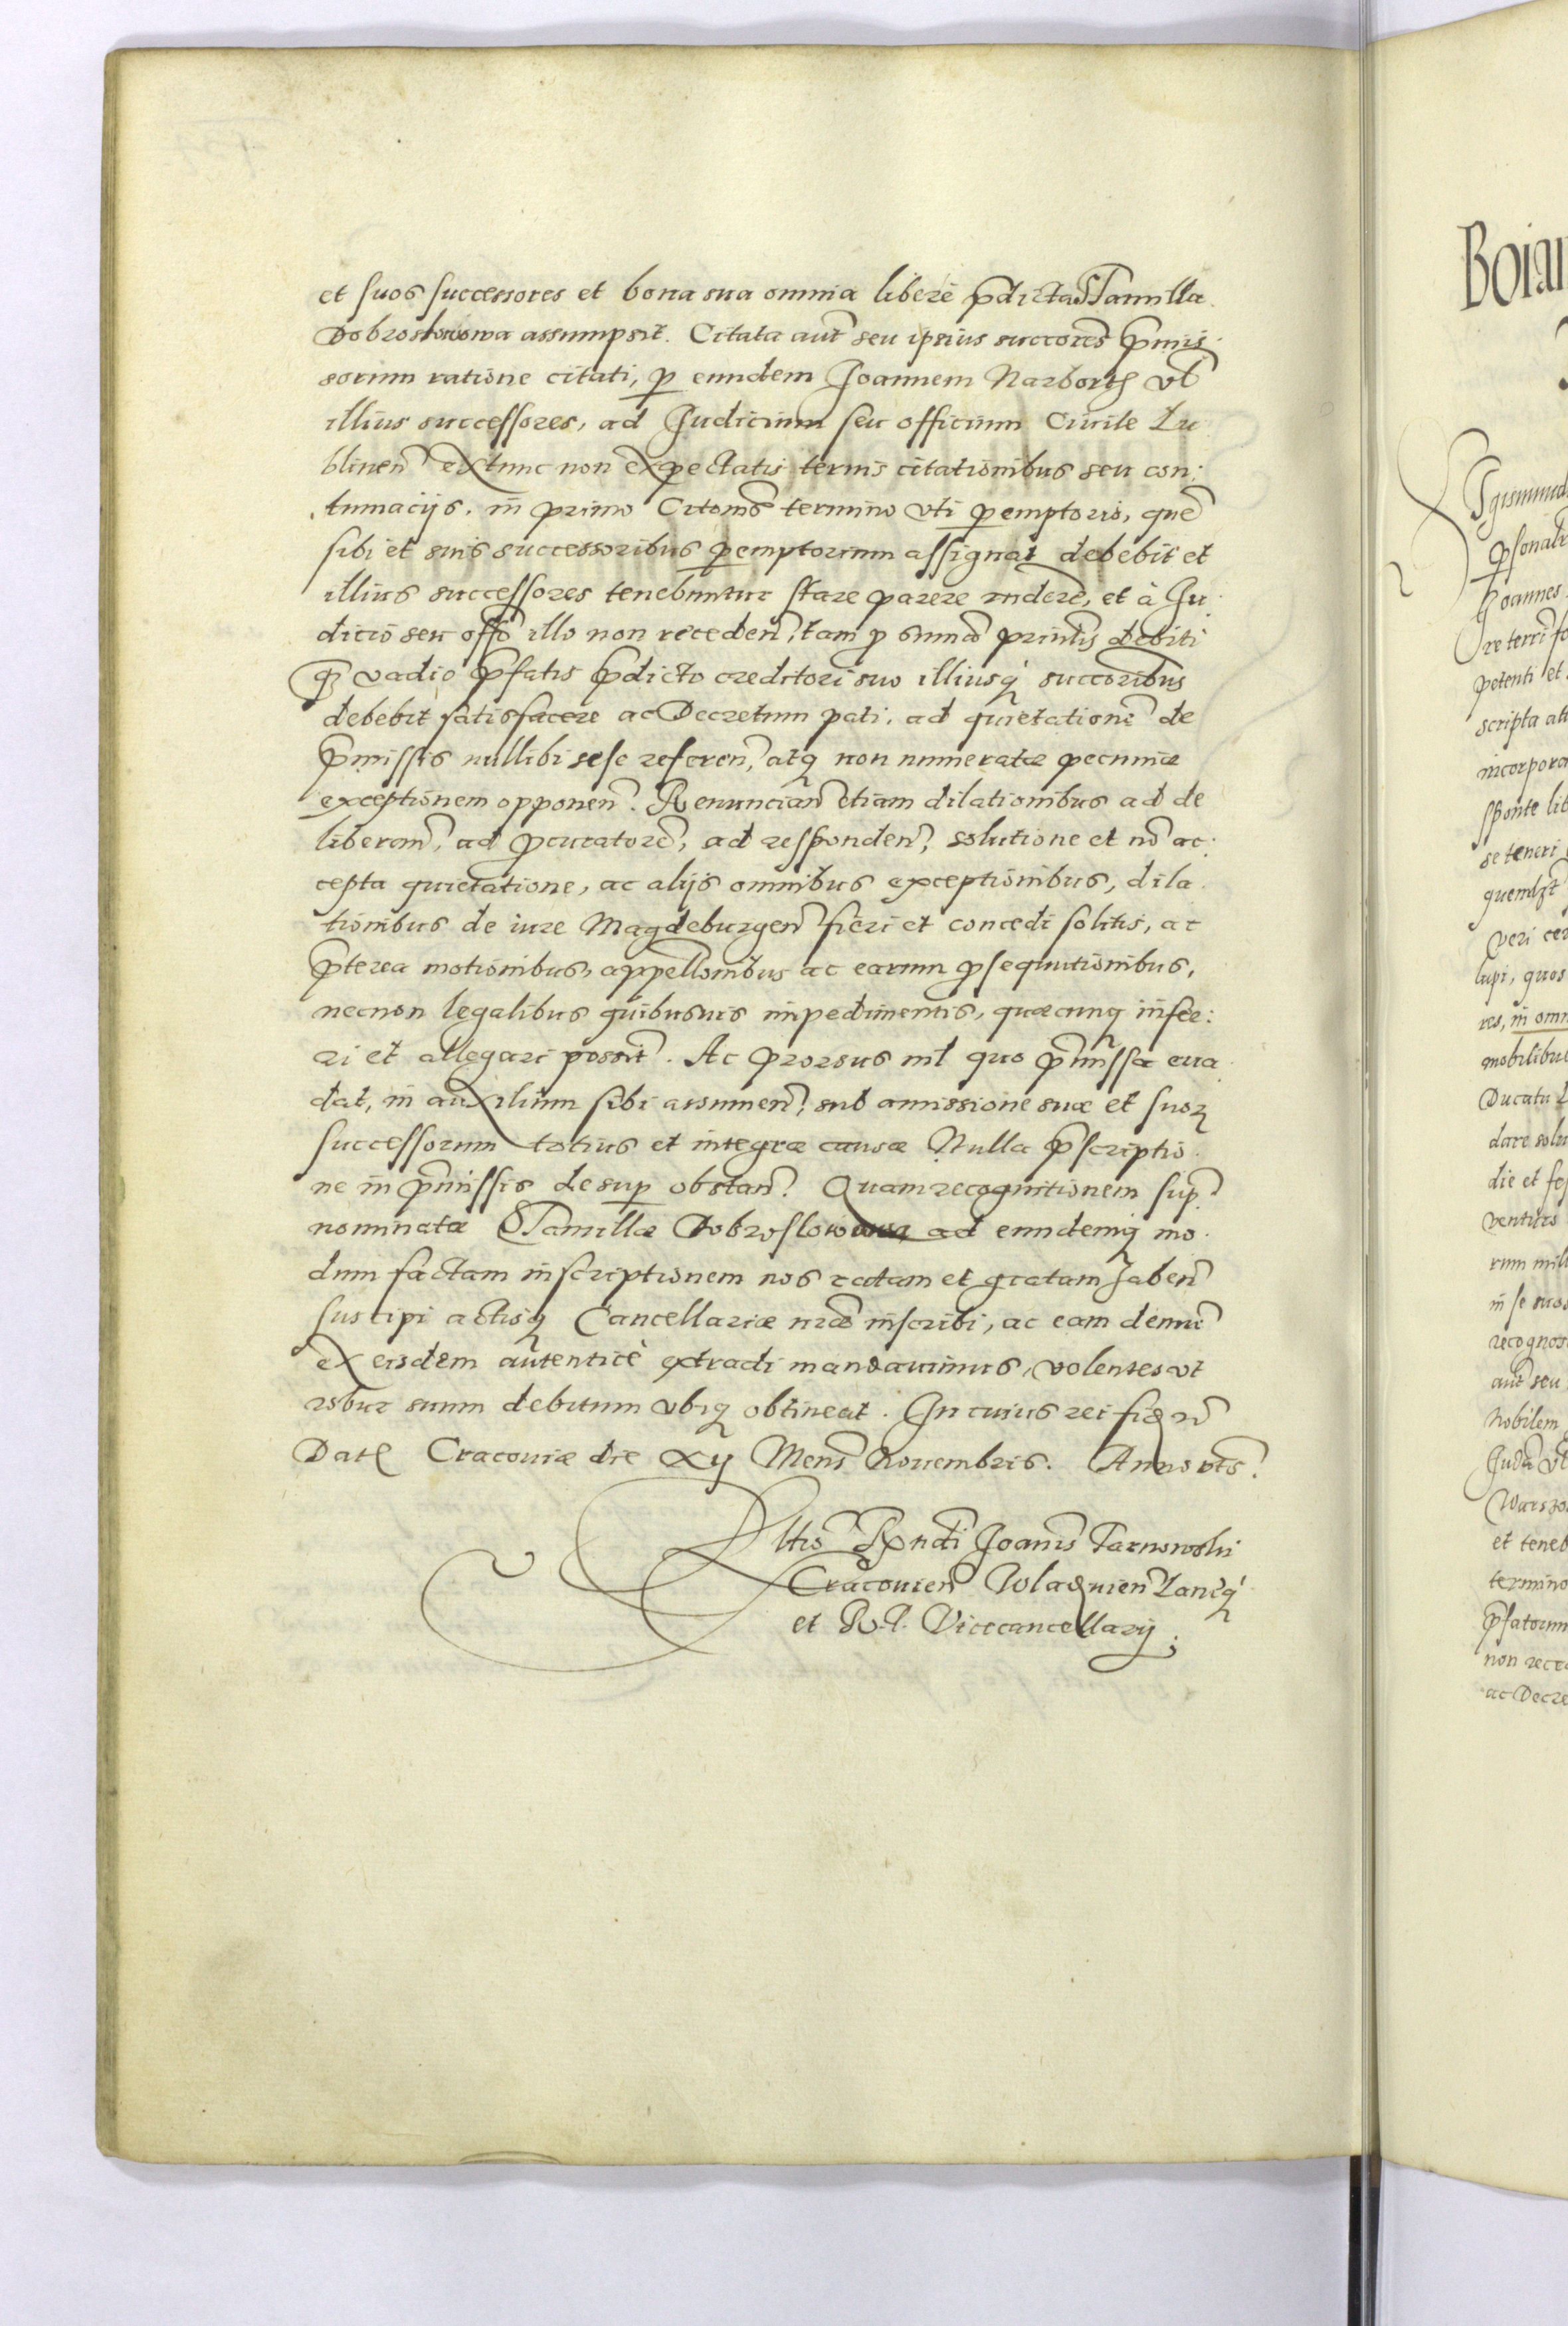 et suos successores et bona sua omnia liberè p̄dicta Stamilla
Dobroslowowa assumpsit. Citata aut̄ seu ipsius succores p̄mis
sorum ratione citati, p eundem Joannem Narborth vl
illius successores, ad Judicium seu officium Ciuile Lu
blinen̄ extunc non expectatis ternis citationibus seu con:
tumacijs, in primo Citōnis termino vti peremptorio, quē
sibi et suis successoribus peremptorium assignat debebit et
illius successores tenebuntur stare parere rndere, et à Ju
dicio seu offō illo non receden̄, tam p summa prinlis debiti
q̄ vadio p̄fatis p̄dicto creditori suo illiusq́ succoribus
debebit satisfacere ac Decretum pati, ad quietationē de
p̄missis nullibi sese referen̄, atq non numeratæ pecuniæ
exceptionem opponen̄. Renuncian̄ etiam dilationibus ad de
liberan̄, ad pcuratorē, ad responden̄, solutione et nō ac:
cepta quietatione, ac alijs omnibus exceptionibus, dila
tionibus de iure Magdeburgen̄ fieri et concedi solitis, ac
p̄terea motionibus, appellōnibus ac earum psequutionibus,
necnon legalibus quibusuis impedimentis, quæcunq infer:
ri et allegari possūt. Ac prorsus nil quo p̄missa eua
dat, in auxilium sibi assumen̄, sub amissione suæ et suoꝝ
successorum totius et integræ causæ Nulla p̄scriptio
ne in p̄missis desup obstan̄. Quam recognitionem sup
nominatæ Stamillæ Dobroslowowa ad eundemq mo
dum factam inscriptionem nos ratam et gratam haben̄
suscipi actisq Cancellariæ nræ inscribi, ac eam demū
ex eisdem autenticè extradi mandauimus, volentes vt
robur suum debitum vbiq obtineat. In cuius rei fidem
Dat Cracouiæ die xij Mens̄ Nouembris. Anno vts̄.
Rltio Rxndi Joanis Tarnowski
Cracouien̄ Wladislauien̄ Lanciq́
et R. P. Vicecancellarij
Boian
Sigismund
psonalit
Joannes
re terri fo
petenti et
scripta att
incorpora
sponte lib
se teneri
quemlzt
Veri cer
lupi, quos
res, in omn
mobilibus
Ducatu L
dare solu
die et fes
venturo
rum mil
in se suos
recognos
aut̄ seu
Nobilem
Judm vl
Warszo
et teneb
termino
p̄fatorum
non rece
ac Decre